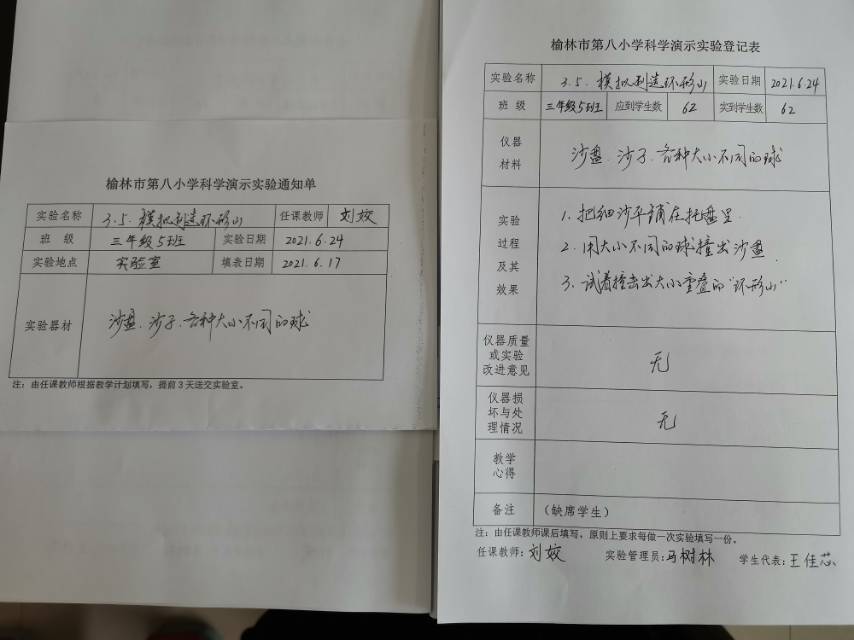 榆林市第八小学科学演示实验通知单
实验名称 3.5.模拟制造环形山 任课教师 刘姣
班 级 三年级5班 实验日期 2021.6.24
实验地点 实验室 填表日期 2021.6.17
实验器材 沙盘、沙子、各种大小不同的球
注:由任课教师根据教学计划填写,提前3天送交实验室。
榆林市第八小学科学演示实验登记表
实验名称 3.5.模拟制造环形山 实验日期 2021.6.24
班 级 三年级5班 应到学生数 62 实到学生数 62
仪器
材料
沙盘、沙子、各种大小不同的球
实验
过程
及其
效果
1.把细沙平铺在托盘里
2.用大小不同的球撞击沙盘
3.试着撞击出大小重叠的“环形山”
仪器质量
或实验
改进意见
无
仪器损
坏与处
理情况
无
教学
心得
备注 (缺席学生)
注:由任课教师课后填写,原则上要求每做一次实验填写一份。
任课教师:刘姣 实验管理员:马树林 学生代表:王佳芯